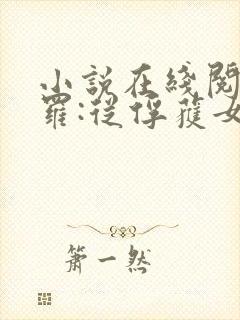 小說在綫閱
羅:從俘獲女
蕭一然